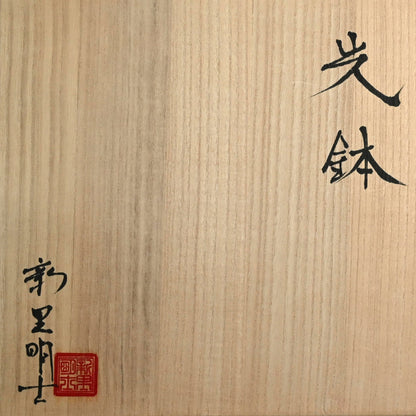 光鉢
新里明士